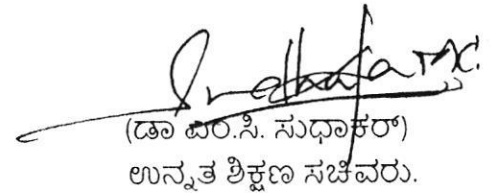 (ಡಾ ಎಂ.ಸಿ. ಸುಧಾಕರ್)
ಉನ್ನತ ಶಿಕ್ಷಣ ಸಚಿವರು.